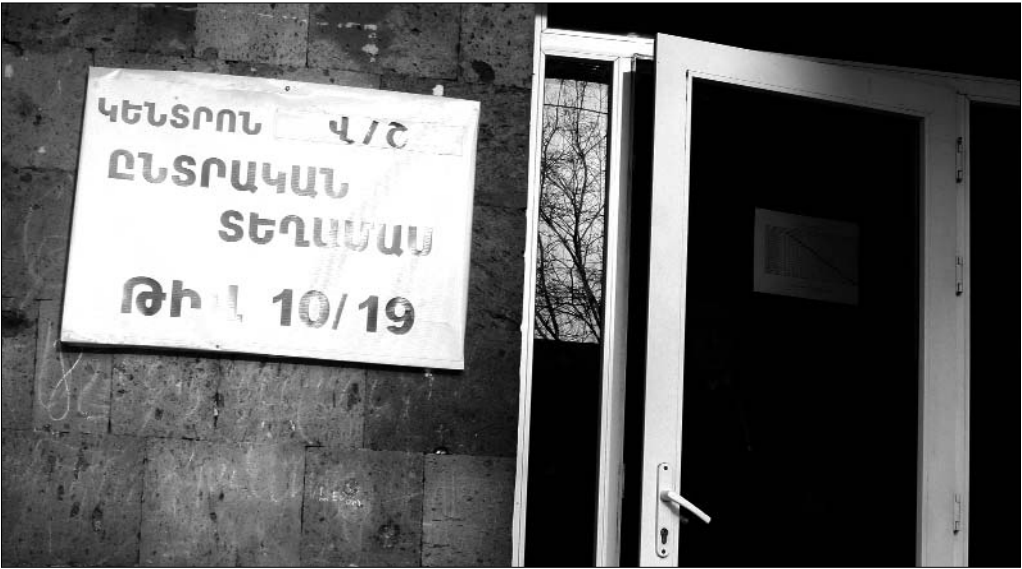 ԿԵՆՏՐՈՆ Վ/Շ
ԸՆՏՐԱԿԱՆ
ՏԵՂԱՄԱՍ
ԹԻՎ 10/19